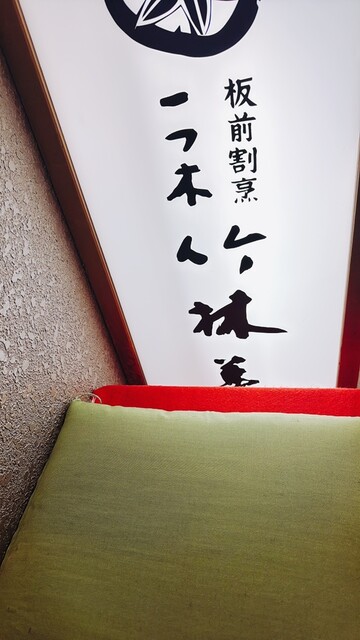 板前割烹
一つ木
竹林